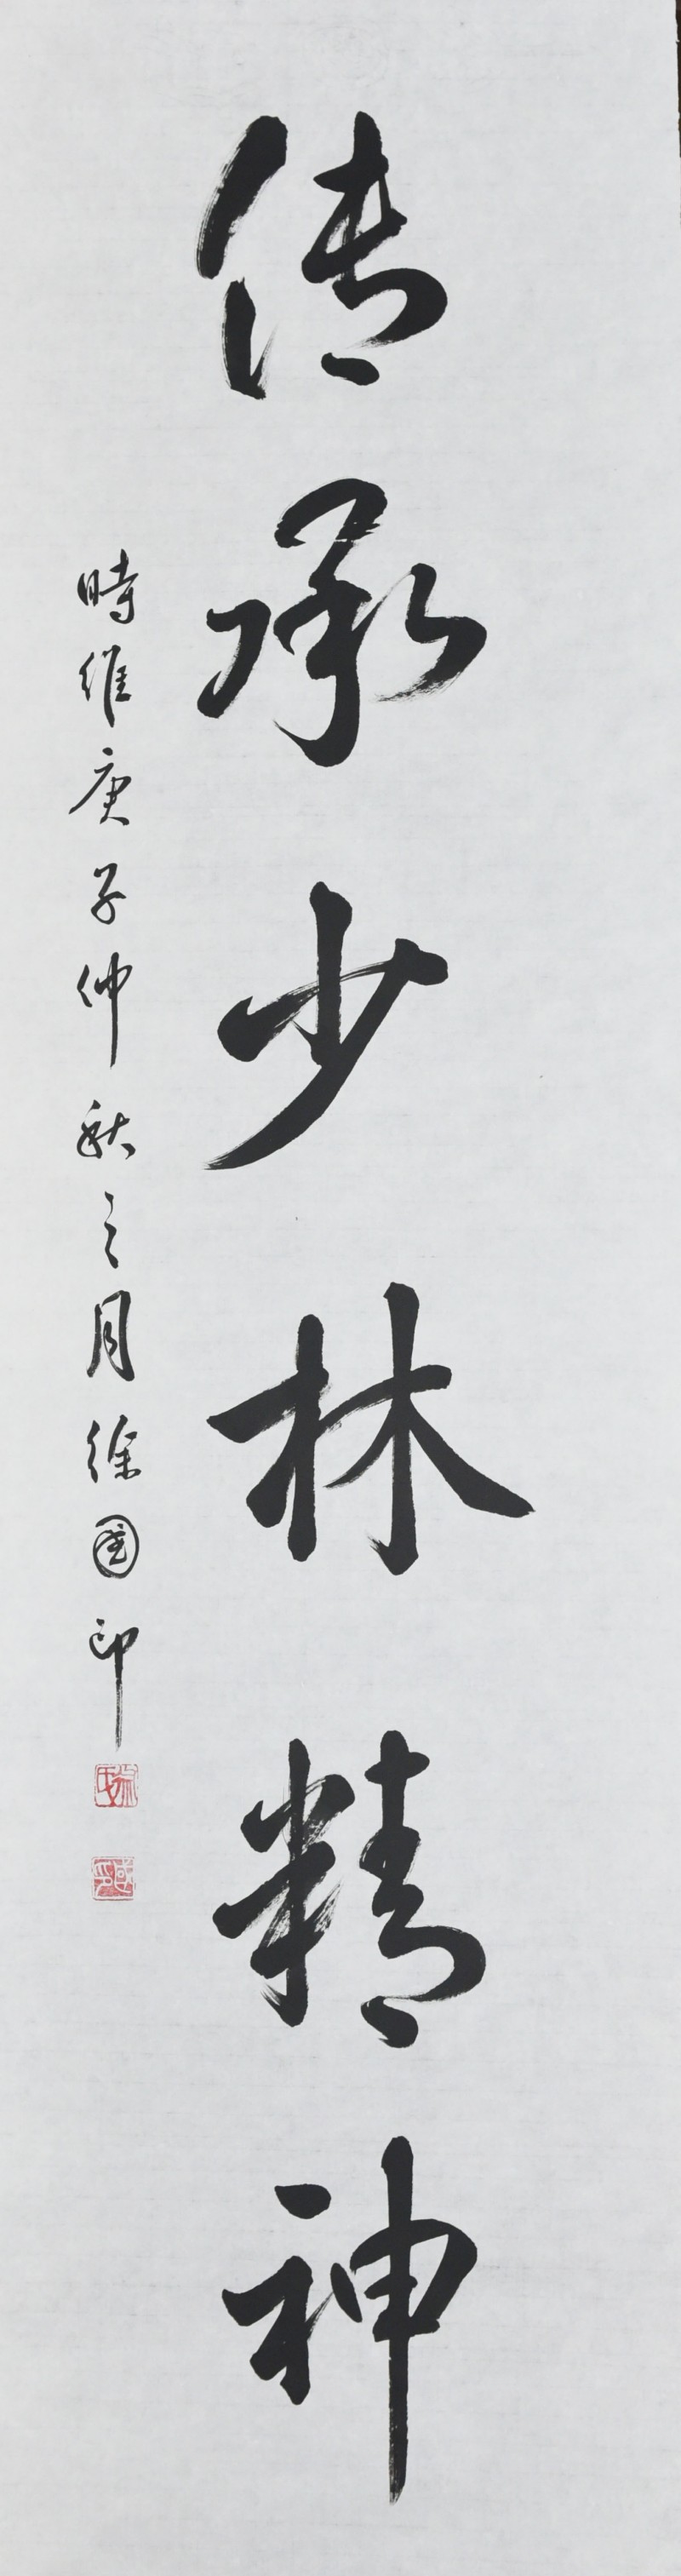 传承少林精神
時維庚子仲秋之月徐國印